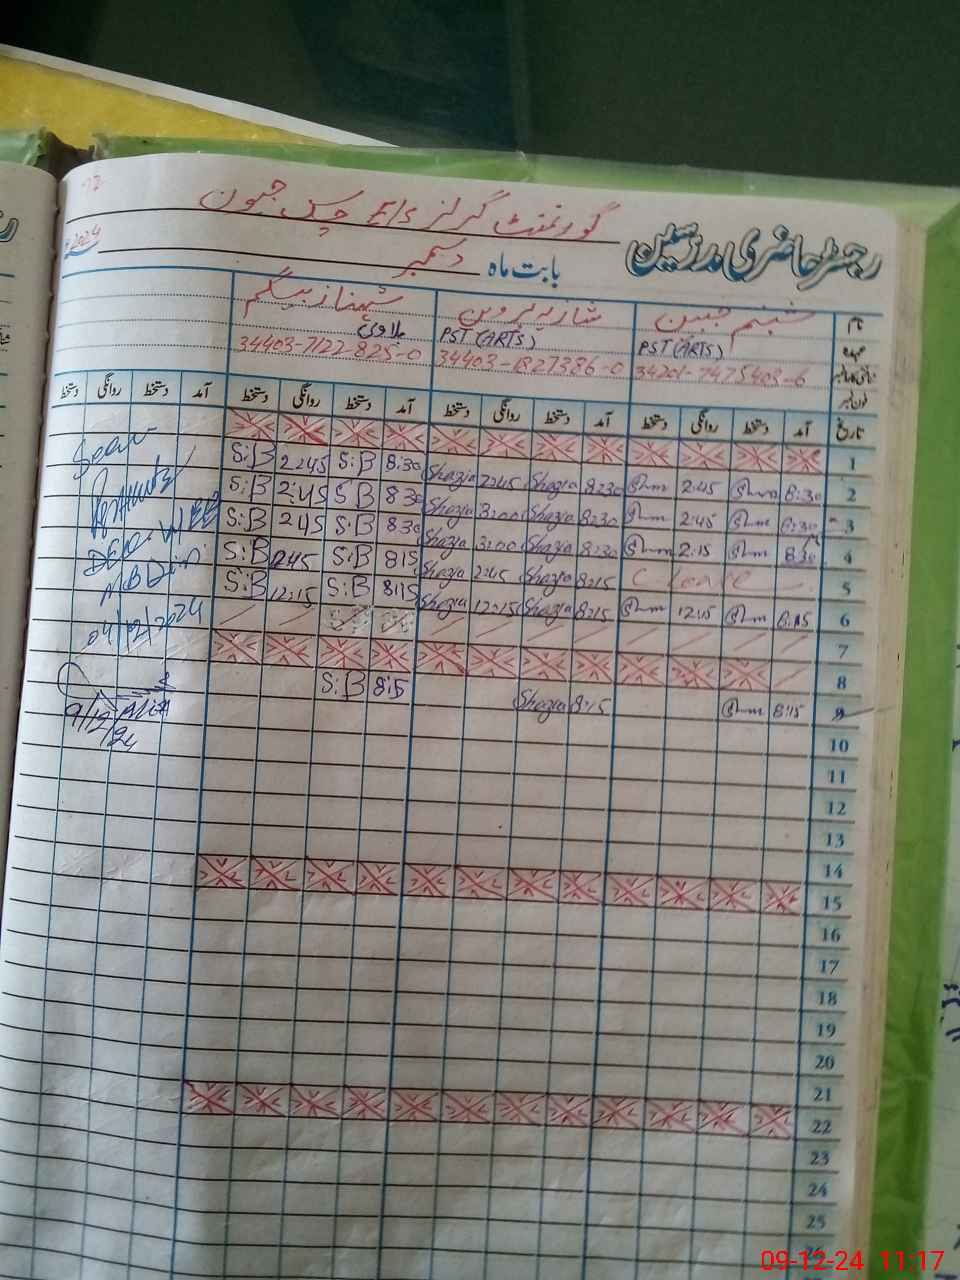 گورنمنٹ گرلز E/S چک جیون
رجسٹر حاضری مدرسین
بابت ماہ دسمبر 2024
نام شبنم جبین شازیہ پروین شہناز بیگم
عہدہ PST (ARTS) PST (ARTS)
34201-7475403-6 34403-1827386-0 34403-7122-825-0
فون نمبر
تاریخ آمد دستخط روانگی دستخط آمد دستخط روانگی دستخط آمد دستخط روانگی دستخط آمد دستخط روانگی دستخط
1
2 8:30 2:45 8:30 Shazia 2:45 Shazia 8:30 S:B 2:45 S:B
3 8:30 2:45 8:30 Shazia 3:00 Shazia 8:30 S:B 2:45 S:B
4 8:30 2:15 8:30 Shazia 3:00 Shazia 8:30 S:B 2:45 S:B
5 C-leave 8:15 Shazia 2:45 Shazia 8:15 S:B 2:45 S:B
6 8:15 12:15 8:15 Shazia 12:15 Shazia 8:15 S:B 12:15 S:B
7
8
9 8:15 8:15 Shazia 8:15 S:B
10
11
12
13
14
15
16
17
18
19
20
21
22
23
24
25
26
04/12/2024
9/12/24
09-12-24 11:17